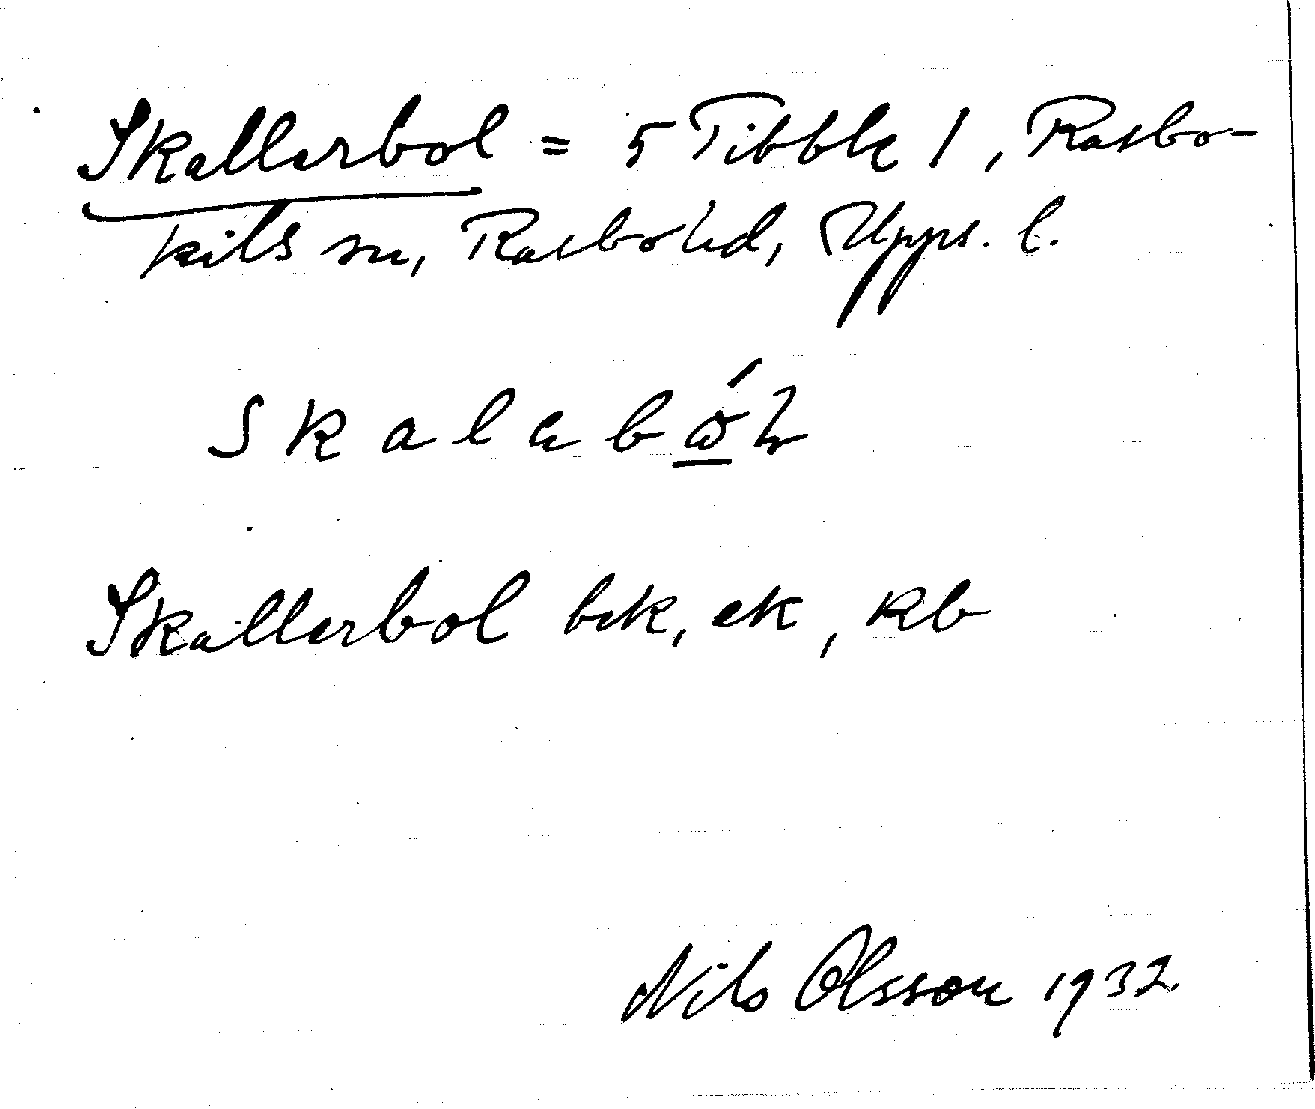 Skallerbol = 5 Tibble 1, Rasbo-
kils sn, Rasbo hd, Upps. l.
Skallerbol bek, ek, kb
Nils Olsson 1932